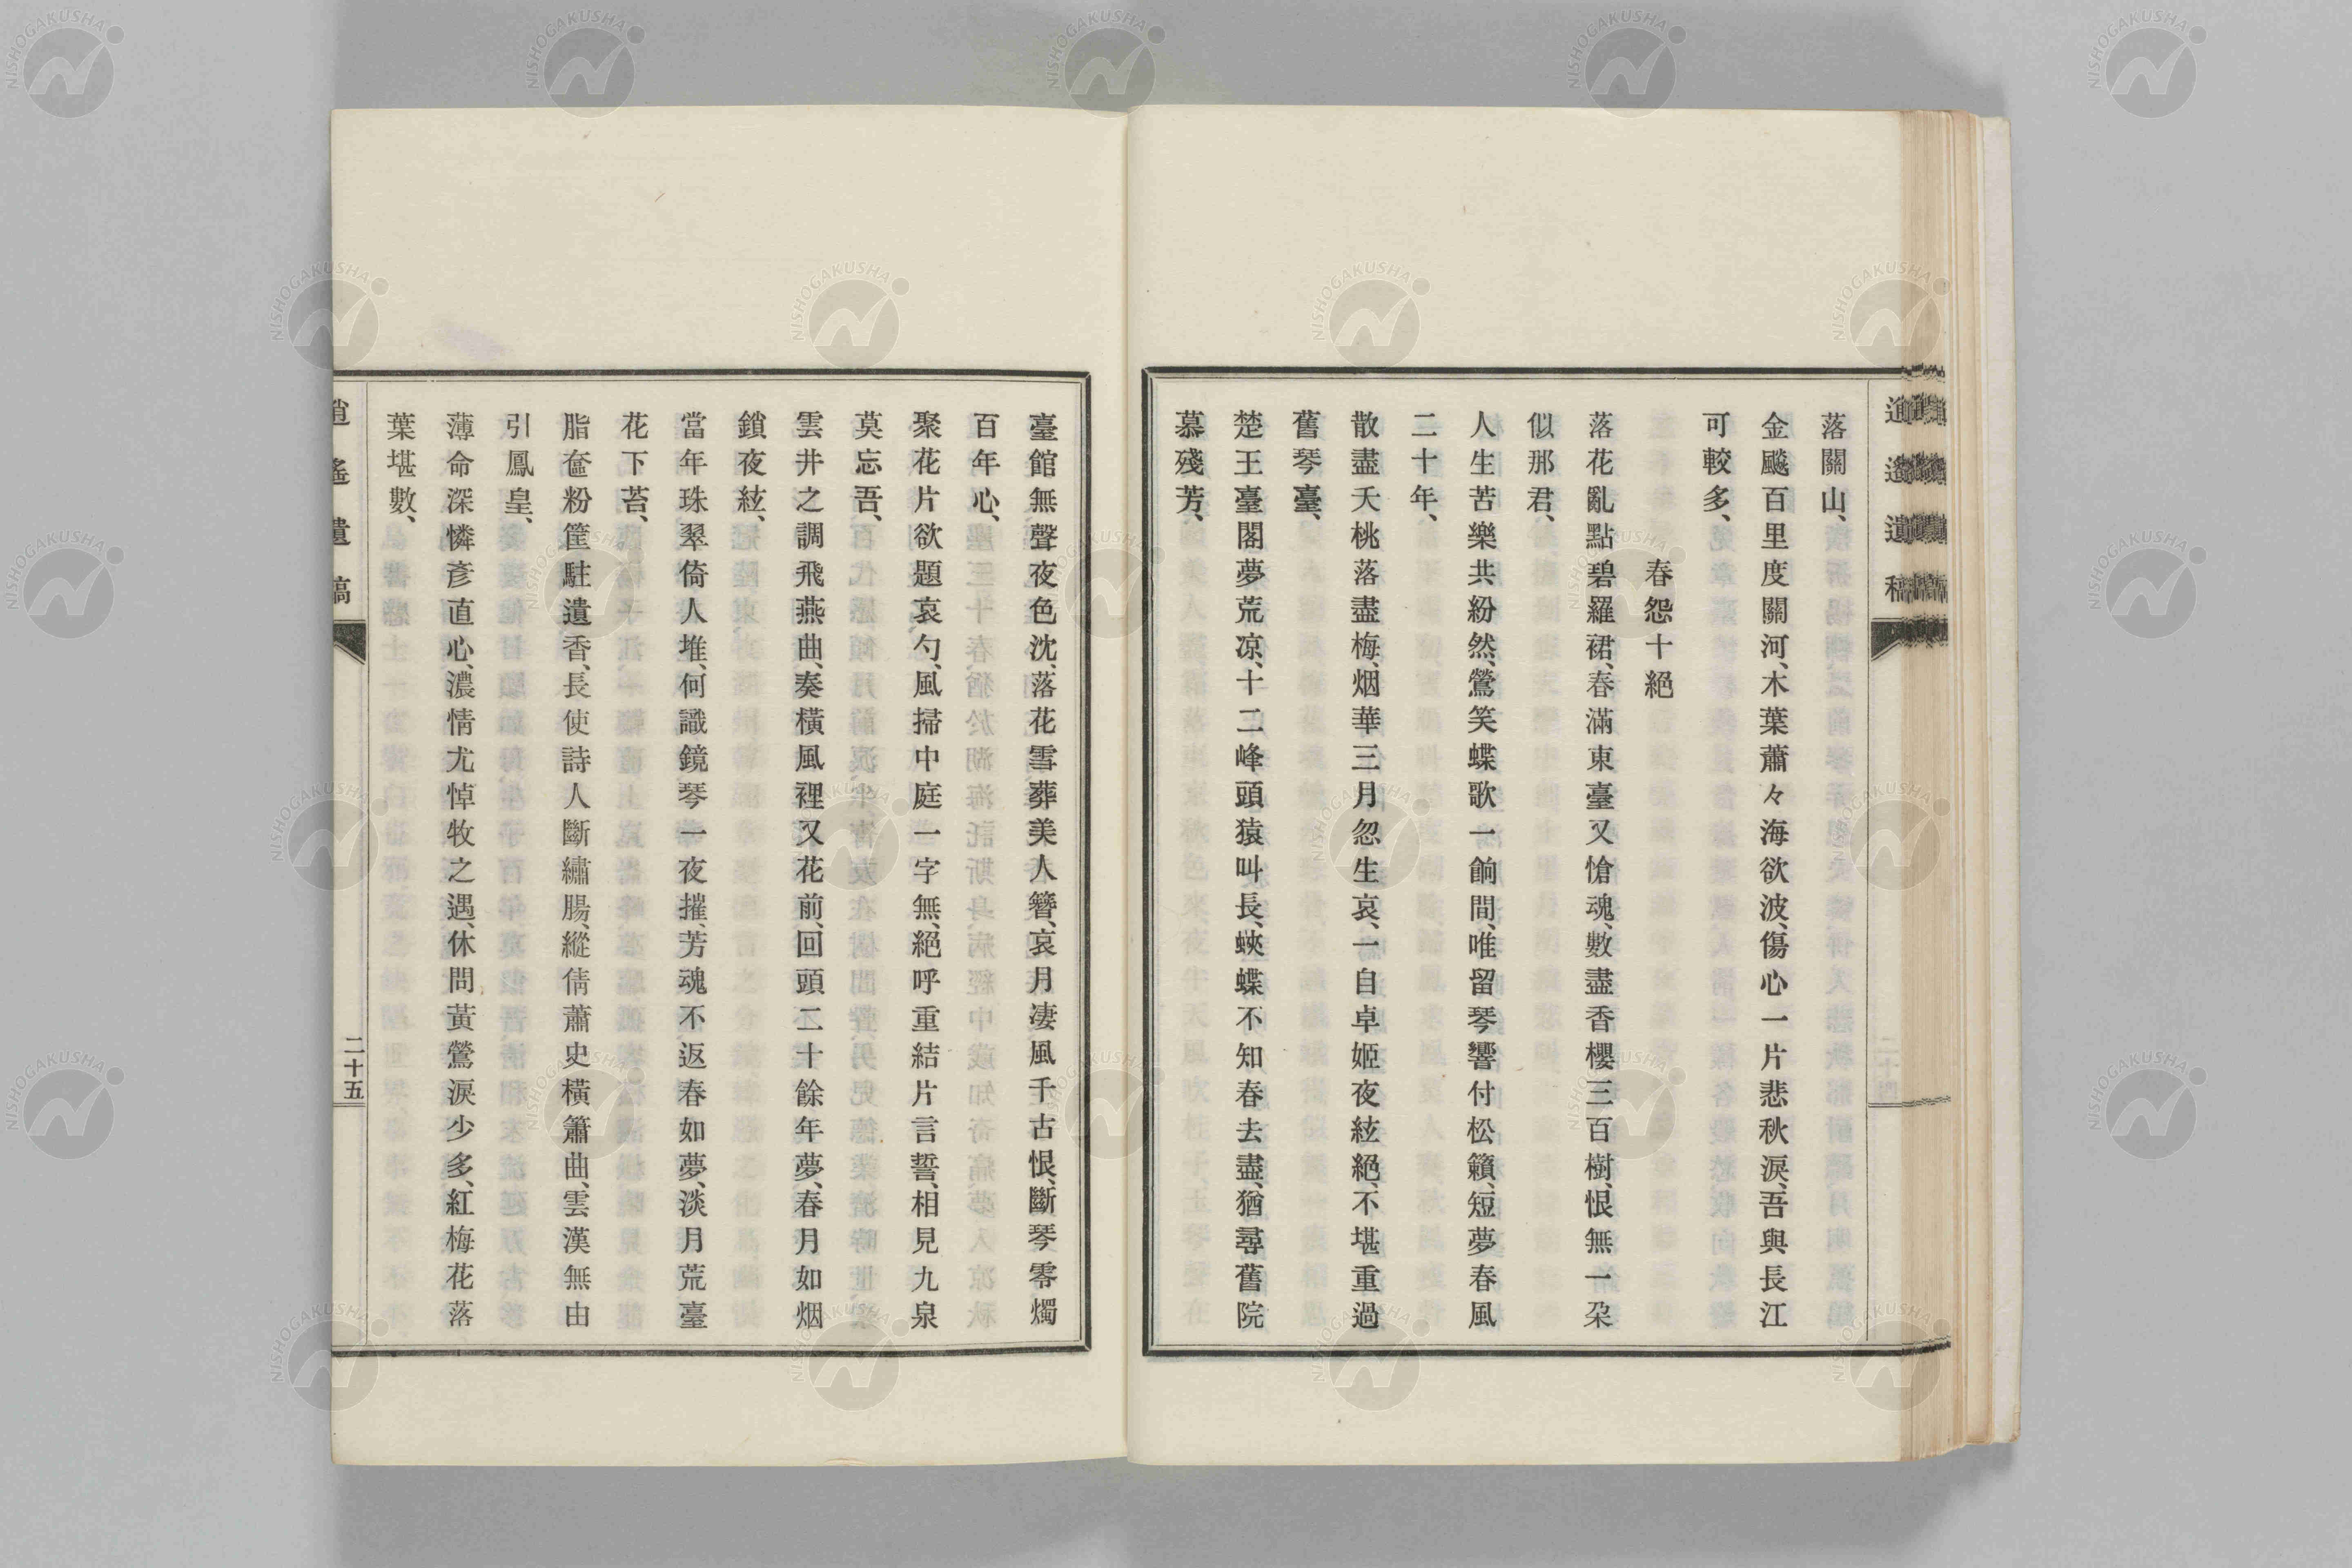 逍遙遺稿
落關山、
金飈百里度關河、木葉蕭々海欲波、傷心一片悲秋淚、吾與長江
可較多、
春怨十絕
落花亂點碧羅裙、春滿東臺又愴魂、數盡香櫻三百樹、恨無一朶
似那君、
人生苦樂共紛然、鶯笑蝶歌一餉間、唯留琴響付松籟、短夢春風
二十年、
散盡夭桃落盡梅、烟華三月忽生哀、一自卓姬夜絃絕、不堪重過
舊琴臺、
楚王臺閣夢荒凉、十二峰頭猿叫長、蛺蝶不知春去盡、猶尋舊院
慕殘芳、
臺館無聲夜色沈、落花雪葬美人簪、哀月凄風千古恨、斷琴零燭
百年心、
聚花片欲題哀勺、風掃中庭一字無、絕呼重結片言誓、相見九泉
莫忘吾、
雲井之調飛燕曲、奏橫風裡又花前、回頭二十餘年夢、春月如烟
鎖夜絃、
當年珠翠倚人堆、何識鏡琴一夜摧、芳魂不返春如夢、淡月荒臺
花下苔、
脂奩粉筐駐遺香、長使詩人斷繡腸、縱倩蕭史橫簫曲、雲漢無由
引鳳皇、
薄命深憐彥直心、濃情尤悼牧之遇、休問黃鶯淚少多、紅梅花落
葉堪數、
逍遙遺稿
二十五